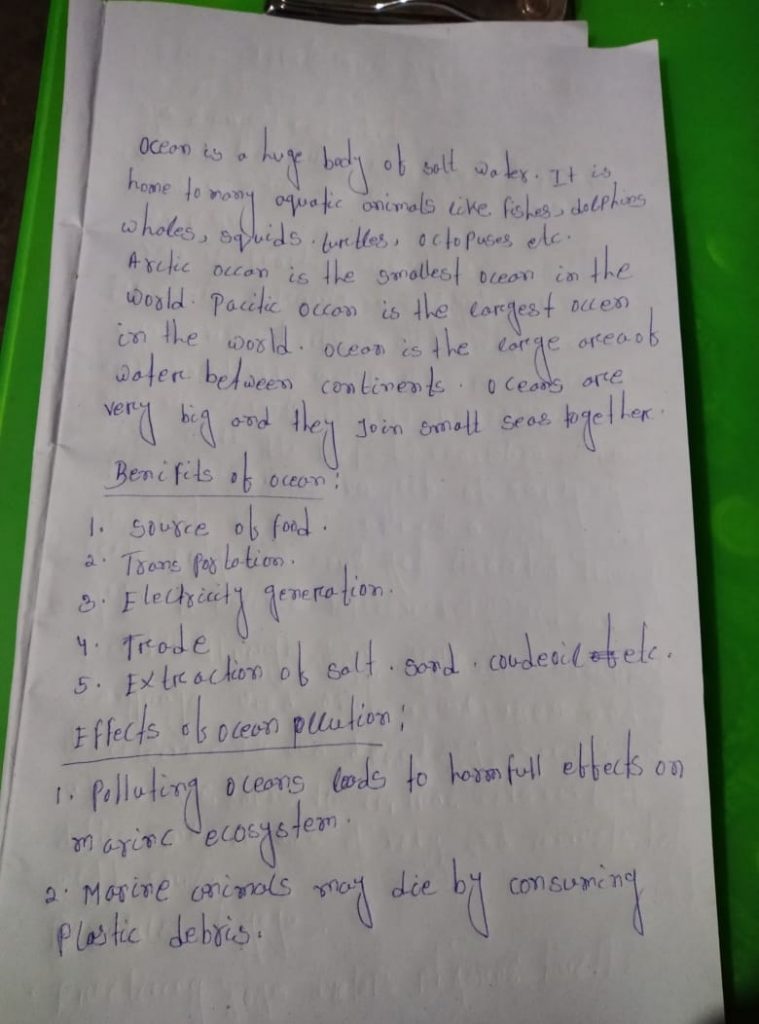 Ocean is a huge body of salt water. It is
home to many aquatic animals like fishes, dolphins
whales, squids. turtles, octopuses etc.
Arctic occan is the smallest ocean in the
world. Pacific occan is the largest occen
in the world. ocean is the large area of
water between continents. oceans are
very big and they join small seas together.
Benifits of ocean:
1. Source of food.
2. Transportation.
3. Electricity generation.
4. Trade
5. Extraction of salt. sand. coudeoil etc.
Effects of ocean pllution:
1. Polluting oceans leads to harmfull effects on
marine ecosystem.
2. Marine animals may die by consuming
Plastic debris.